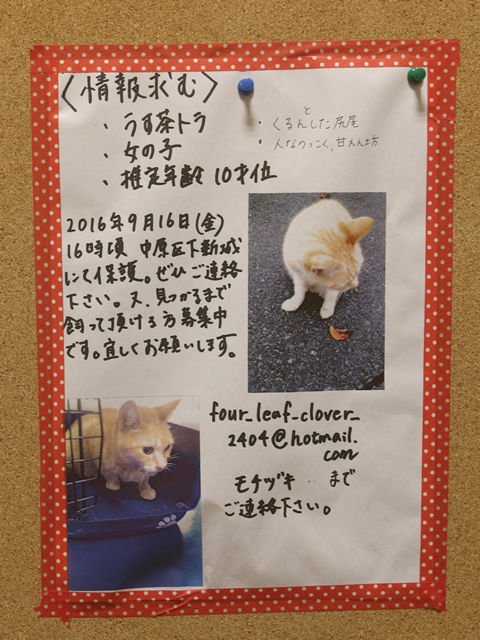 〈情報求む〉
・うす茶トラ
・女の子
・推定年齢 10才位
・くるんとした尻尾
・人なつっこく、甘えん坊
2016年9月16日(金)
16時頃 中原区下新城
にて保護。ぜひご連絡
下さい。又、見つかるまで
飼って頂ける方募集中
です。宜しくお願いします。
four_leaf_clover_
2404@hotmail.
com
モチヅキ まで
ご連絡下さい。